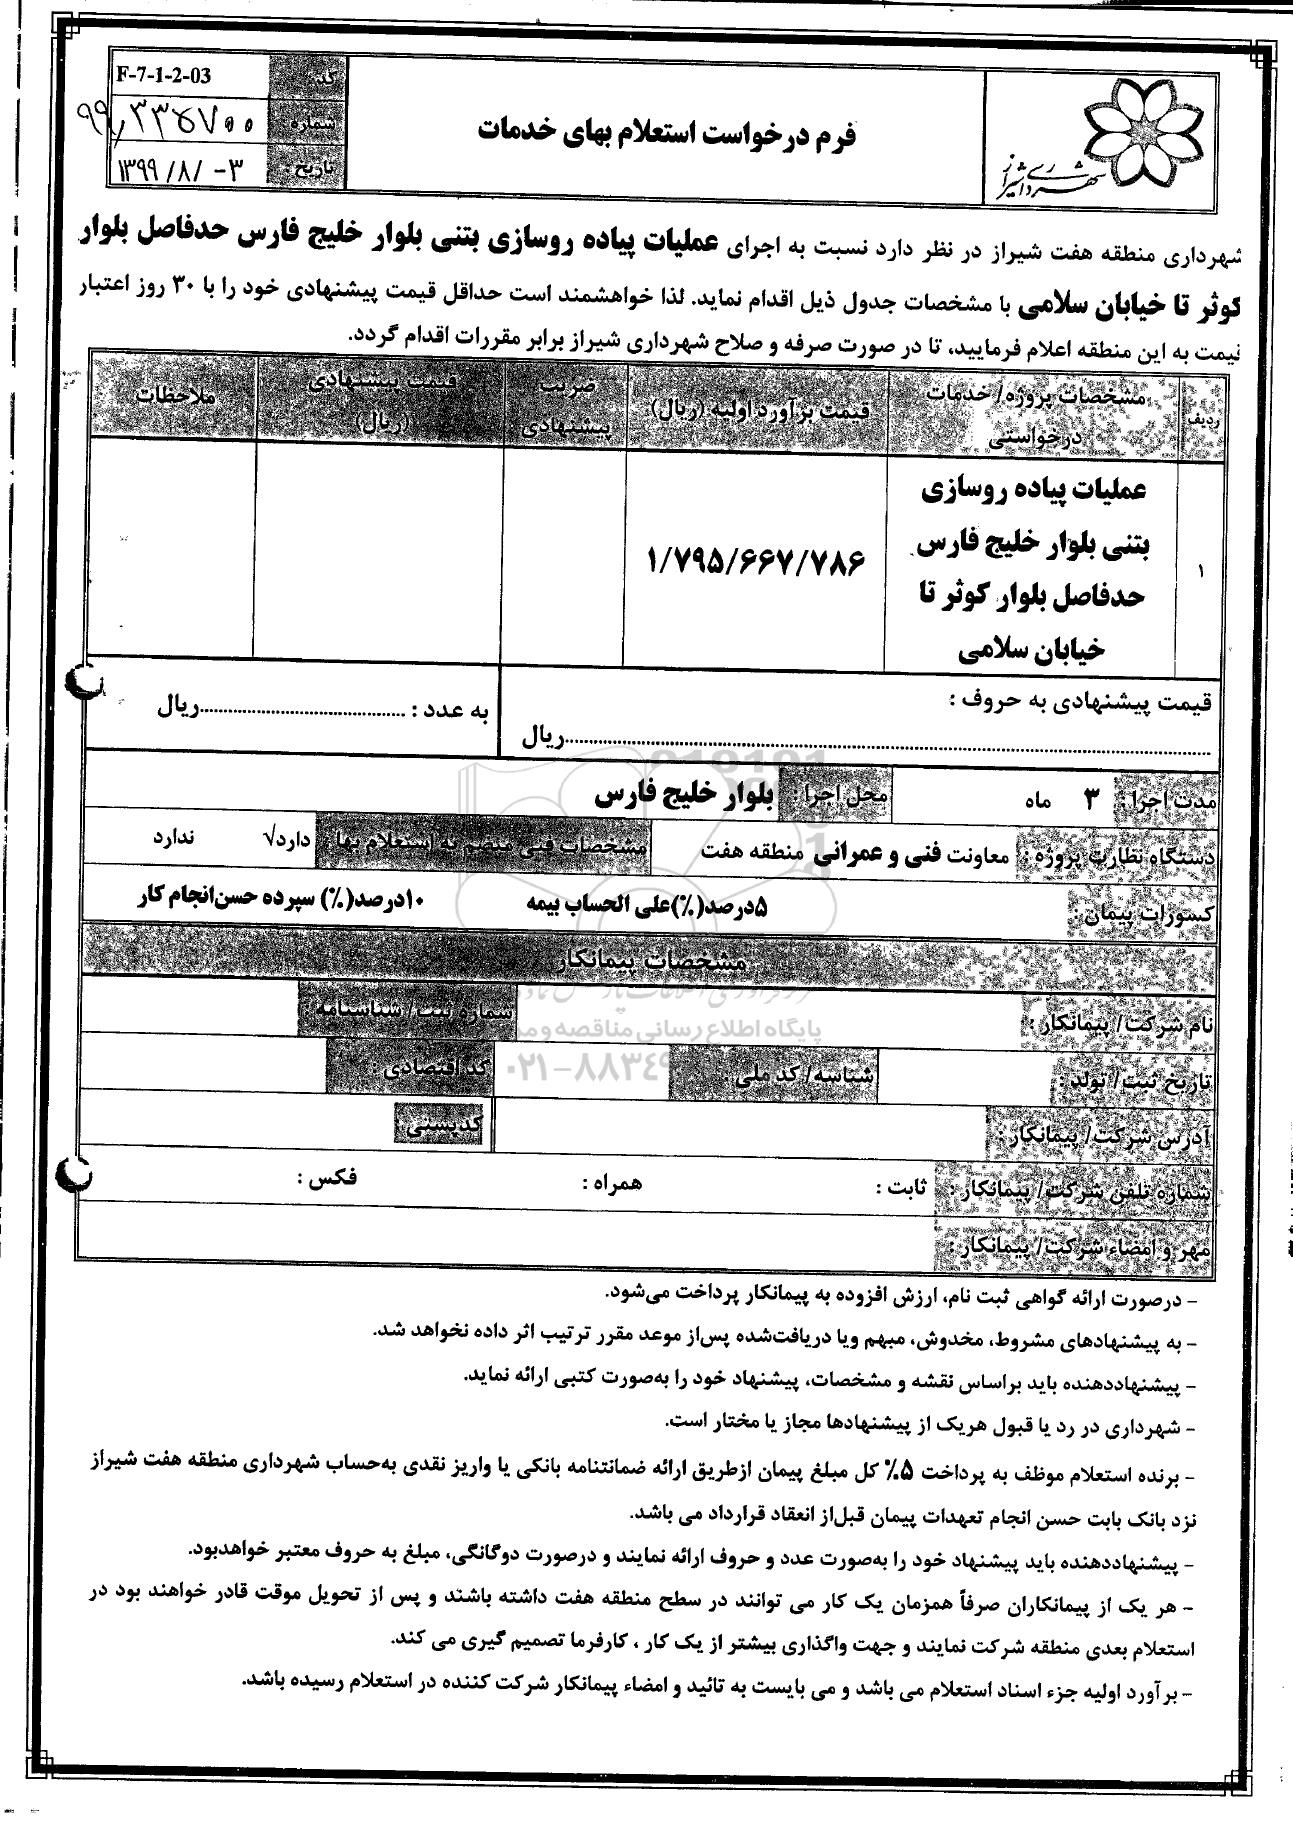 کد: F-7-1-2-03
شماره: ۹۹/۳۳۵۷۰۰
تاریخ: ۱۳۹۹/۸/-۳
فرم درخواست استعلام بهای خدمات
شهرداری شیراز
شهرداری منطقه هفت شیراز در نظر دارد نسبت به اجرای عملیات پیاده روسازی بتنی بلوار خلیج فارس حدفاصل بلوار
کوثر تا خیابان سلامی با مشخصات جدول ذیل اقدام نماید. لذا خواهشمند است حداقل قیمت پیشنهادی خود را با ۳۰ روز اعتبار
قیمت به این منطقه اعلام فرمایید، تا در صورت صرفه و صلاح شهرداری شیراز برابر مقررات اقدام گردد.
ردیف مشخصات پروژه/ خدمات درخواستی قیمت برآورد اولیه (ریال) ضریب پیشنهادی قیمت پیشنهادی (ریال) ملاحظات
۱ عملیات پیاده روسازی
بتنی بلوار خلیج فارس
حدفاصل بلوار کوثر تا
خیابان سلامی
۱/۷۹۵/۶۶۷/۷۸۶
قیمت پیشنهادی به حروف :
..........ریال
به عدد : ..........ریال
مدت اجرا : ۳ ماه محل اجرا : بلوار خلیج فارس
دستگاه نظارت پروژه : معاونت فنی و عمرانی منطقه هفت مشخصات فنی منضم به استعلام بها : دارد√ ندارد
کسورات پیمان : ۵درصد(٪)علی الحساب بیمه ۱۰درصد(٪) سپرده حسن‌انجام کار
مشخصات پیمانکار
نام شرکت/ پیمانکار : شماره ثبت/ شناسنامه :
تاریخ ثبت/ تولد : شناسه/ کد ملی : کد اقتصادی :
آدرس شرکت/ پیمانکار : کدپستی :
شماره تلفن شرکت/ پیمانکار : ثابت : همراه : فکس :
مهر و امضاء شرکت/ پیمانکار :
پایگاه اطلاع رسانی مناقصه و
۰۲۱-۸۸۳۴۹
- درصورت ارائه گواهی ثبت نام، ارزش افزوده به پیمانکار پرداخت می‌شود.
- به پیشنهادهای مشروط، مخدوش، مبهم ویا دریافت‌شده پس‌از موعد مقرر ترتیب اثر داده نخواهد شد.
- پیشنهاددهنده باید براساس نقشه و مشخصات، پیشنهاد خود را به‌صورت کتبی ارائه نماید.
- شهرداری در رد یا قبول هریک از پیشنهادها مجاز یا مختار است.
- برنده استعلام موظف به پرداخت ۵٪ کل مبلغ پیمان ازطریق ارائه ضمانتنامه بانکی یا واریز نقدی به‌حساب شهرداری منطقه هفت شیراز
نزد بانک بابت حسن انجام تعهدات پیمان قبل‌از انعقاد قرارداد می باشد.
- پیشنهاددهنده باید پیشنهاد خود را به‌صورت عدد و حروف ارائه نمایند و درصورت دوگانگی، مبلغ به حروف معتبر خواهدبود.
- هر یک از پیمانکاران صرفاً همزمان یک کار می توانند در سطح منطقه هفت داشته باشند و پس از تحویل موقت قادر خواهند بود در
استعلام بعدی منطقه شرکت نمایند و جهت واگذاری بیشتر از یک کار ، کارفرما تصمیم گیری می کند.
- برآورد اولیه جزء اسناد استعلام می باشد و می بایست به تائید و امضاء پیمانکار شرکت کننده در استعلام رسیده باشد.